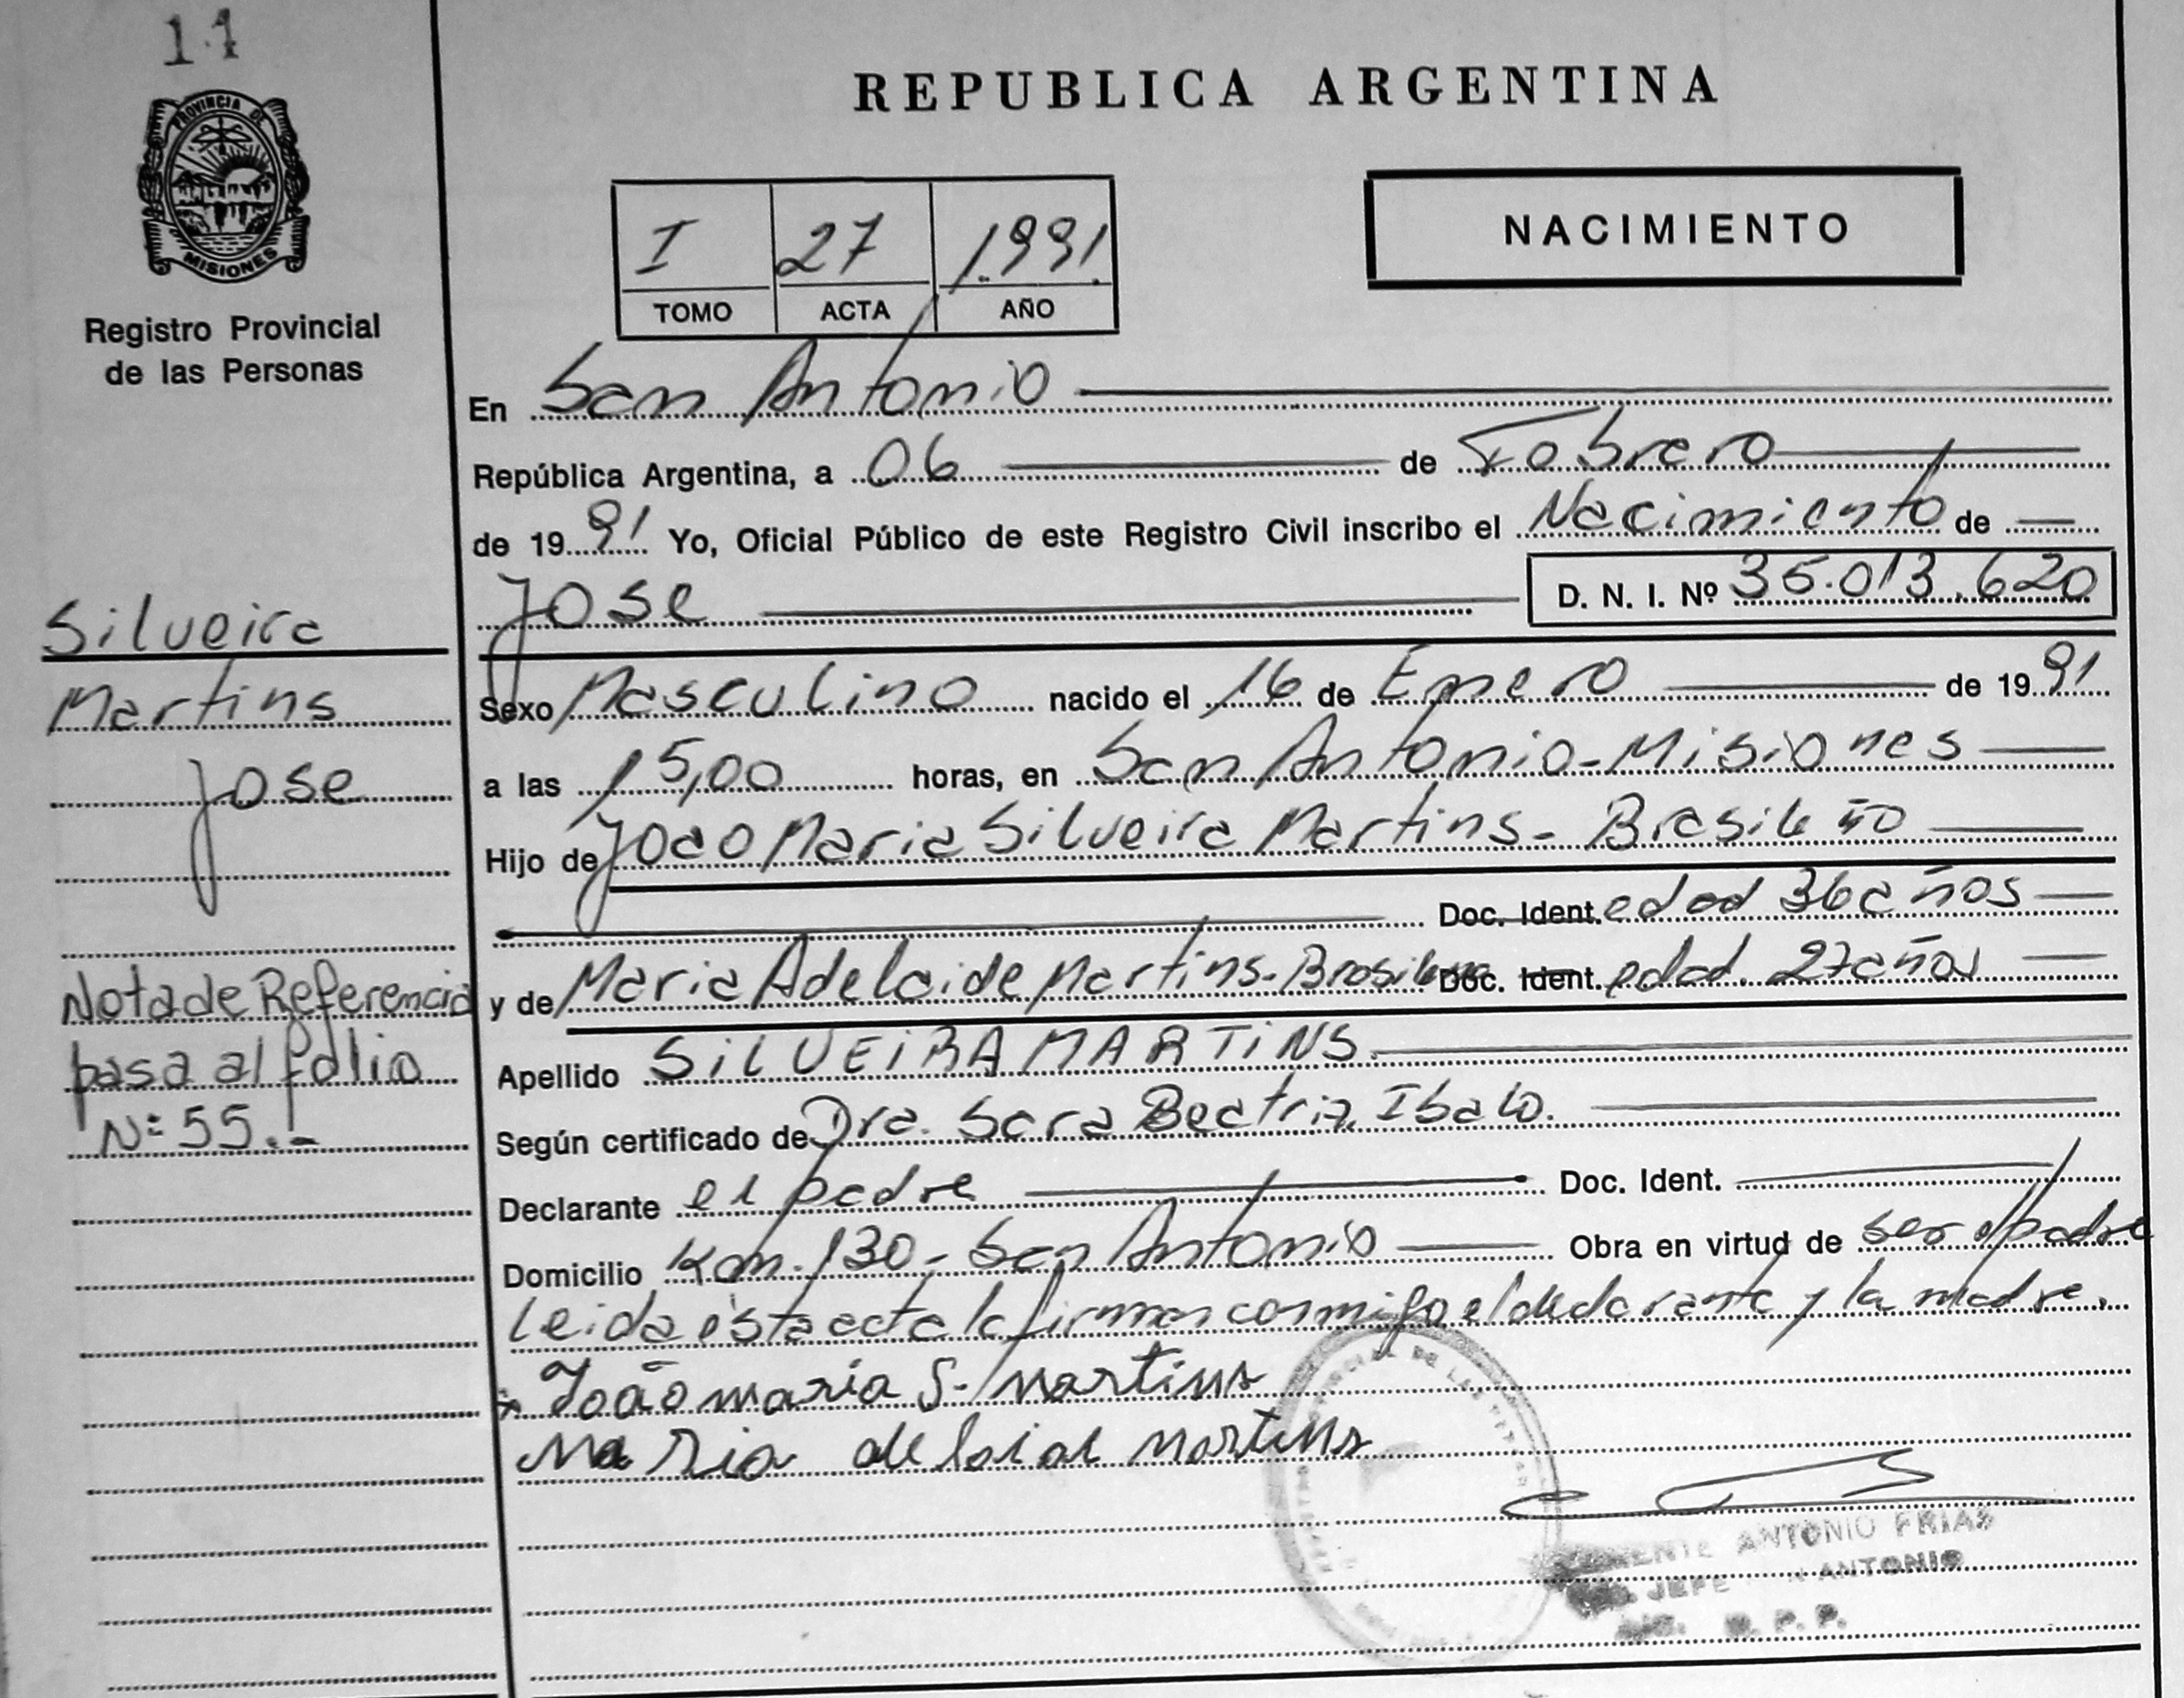 14
PROVINCIA DE
MISIONES
Registro Provincial
de las Personas
Silveira
Martins
Jose
Nota de Referencia
pasa al folio
N: 55.-
REPUBLICA ARGENTINA
I 27 1.991.
TOMO ACTA AÑO
NACIMIENTO
En San Antonio
República Argentina, a 06 de Febrero
de 1991 Yo, Oficial Público de este Registro Civil inscribo el Nacimiento de
Jose D. N. I. Nº 35.013.620
Sexo Masculino nacido el 16 de Enero de 1991
a las 15,00 horas, en San Antonio-Misiones
Hijo de Joao Maria Silveira Martins- Brasileño
Doc. Ident. edad 36 años
y de Maria Adelaide Martins-Brasilena Doc. Ident. edad. 27 años
Apellido SILVEIRA MARTINS.
Según certificado de Dra. Sara Beatriz Ibalo.
Declarante el padre Doc. Ident.
Domicilio Km. 130- San Antonio Obra en virtud de ser el padre
Leida esta acta la firman conmigo el declarante y la madre.
João maria S. martins
Maria delaial martins
ANTONIO FRIAS
JEFE ANTONIO
R. P. P.